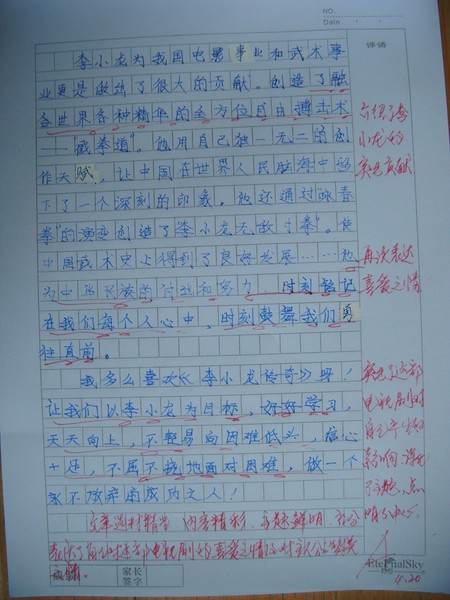 NO.
Date
评语
李小龙为我国电影事业和武术事
业更是做出了很大的贡献。创造了融
合世界各种精华的全方位自由搏击术
——截拳道"。他用自己独一无二的创
作天赋,让中国在世界人民脑海中留
下了一个深刻的印象。他还通过"咏春
拳"的演变创造了"李小龙无敌寸拳"。使
中国武术史上得到了良好发展……他
为中华民族的付出和努力,时刻铭记
在我们每个人心中,时刻鼓舞我们勇
往直前。
我多么喜欢《李小龙传奇》呀!
让我们以李小龙为目标,好好学习,
天天向上,不轻易向困难低头,信心
十足,不屈不挠地面对困难,做一个
永不放弃的成功之人!
介绍了李
小龙的
突出贡献
再次表达
喜爱之情
突出了这部
电视剧对
自己产生的
影响,深化
了主题,点
明了中心。
文章选材精当,内容精彩,主题鲜明,充分
表达了自己对这部电视剧的喜爱之情
家长
签字
EternalSky
4.20